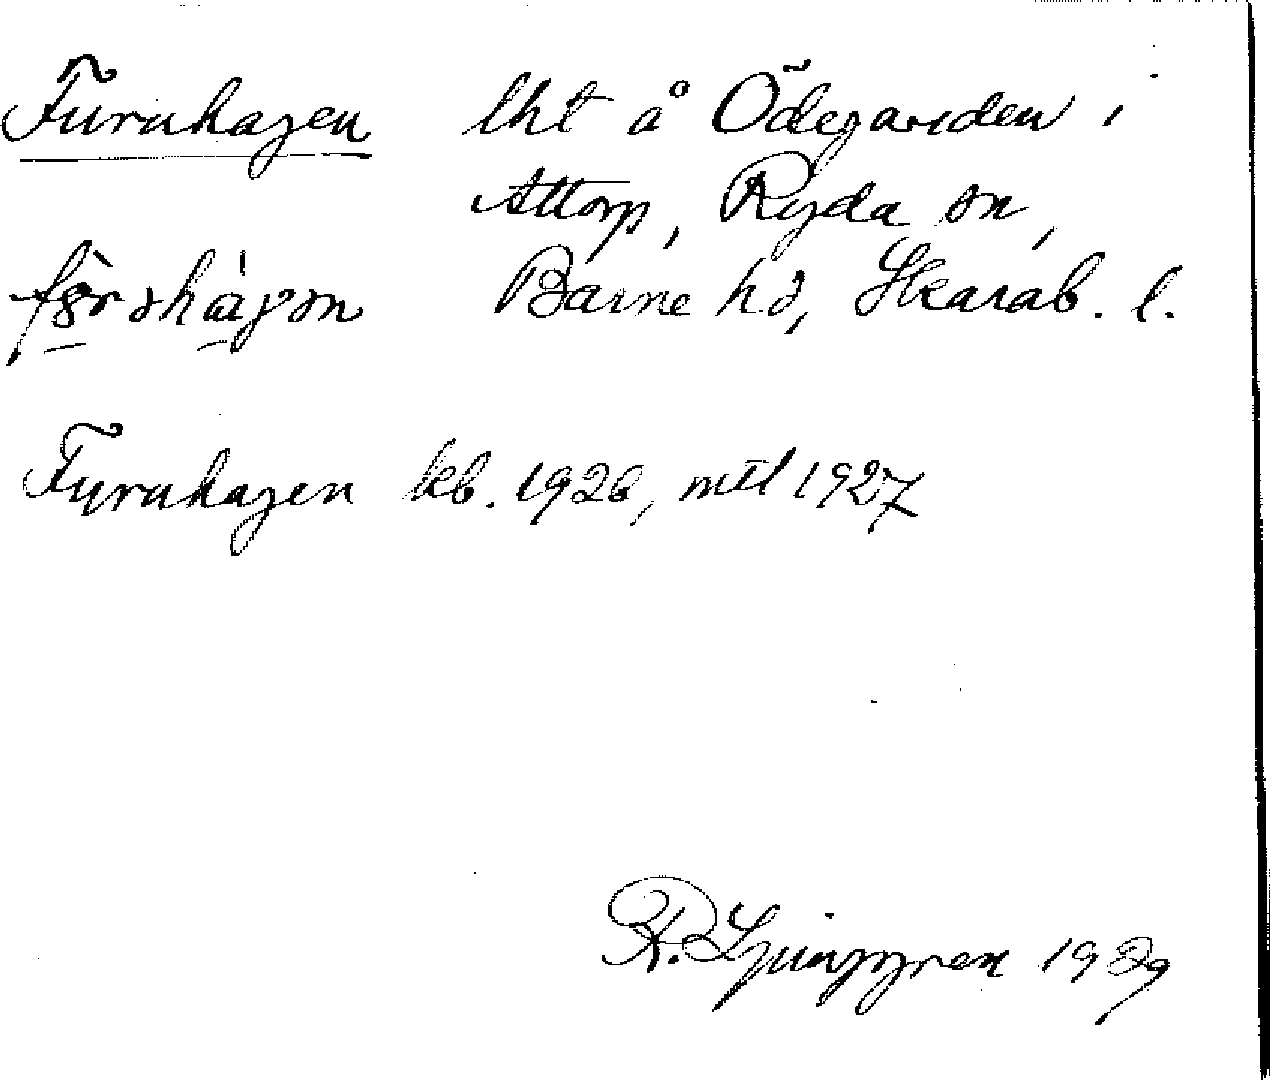 Furuhagen lht å Ödegarden i
Attorp, Ryda sn,
Barne hd, Skarab. l.
Furuhagen kb. 1926, mtl 1927
R. Ljunggren 1929